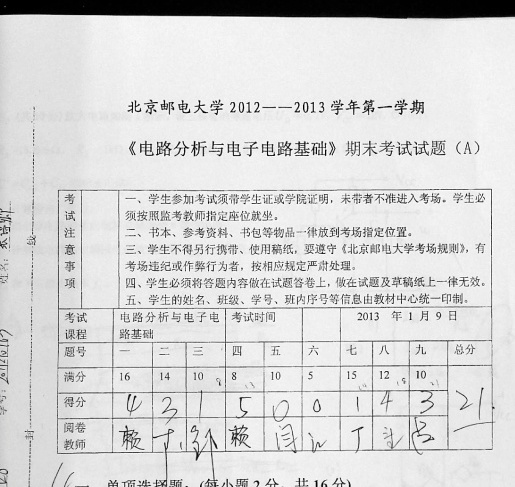 北京邮电大学2012——2013学年第一学期
《电路分析与电子电路基础》期末考试试题（A）
考试注意事项
一、学生参加考试须带学生证或学院证明，未带者不准进入考场。学生必
须按照监考教师指定座位就坐。
二、书本、参考资料、书包等物品一律放到考场指定位置。
三、学生不得另行携带、使用稿纸，要遵守《北京邮电大学考场规则》，有
考场违纪或作弊行为者，按相应规定严肃处理。
四、学生必须将答题内容做在试题答卷上，做在试题及草稿纸上一律无效。
五、学生的姓名、班级、学号、班内序号等信息由教材中心统一印制。
考试课程 电路分析与电子电路基础 考试时间 2013 年 1 月 9 日
题号 一 二 三 四 五 六 七 八 九 总分
满分 16 14 10 8 10 5 15 12 10
得分 4 3 1 5 0 0 1 4 3 21.
阅卷教师 赖 赖 闫 丁
一、单项选择题：(每小题 2 分，共 16 分)
线
封
姓名：
学号：